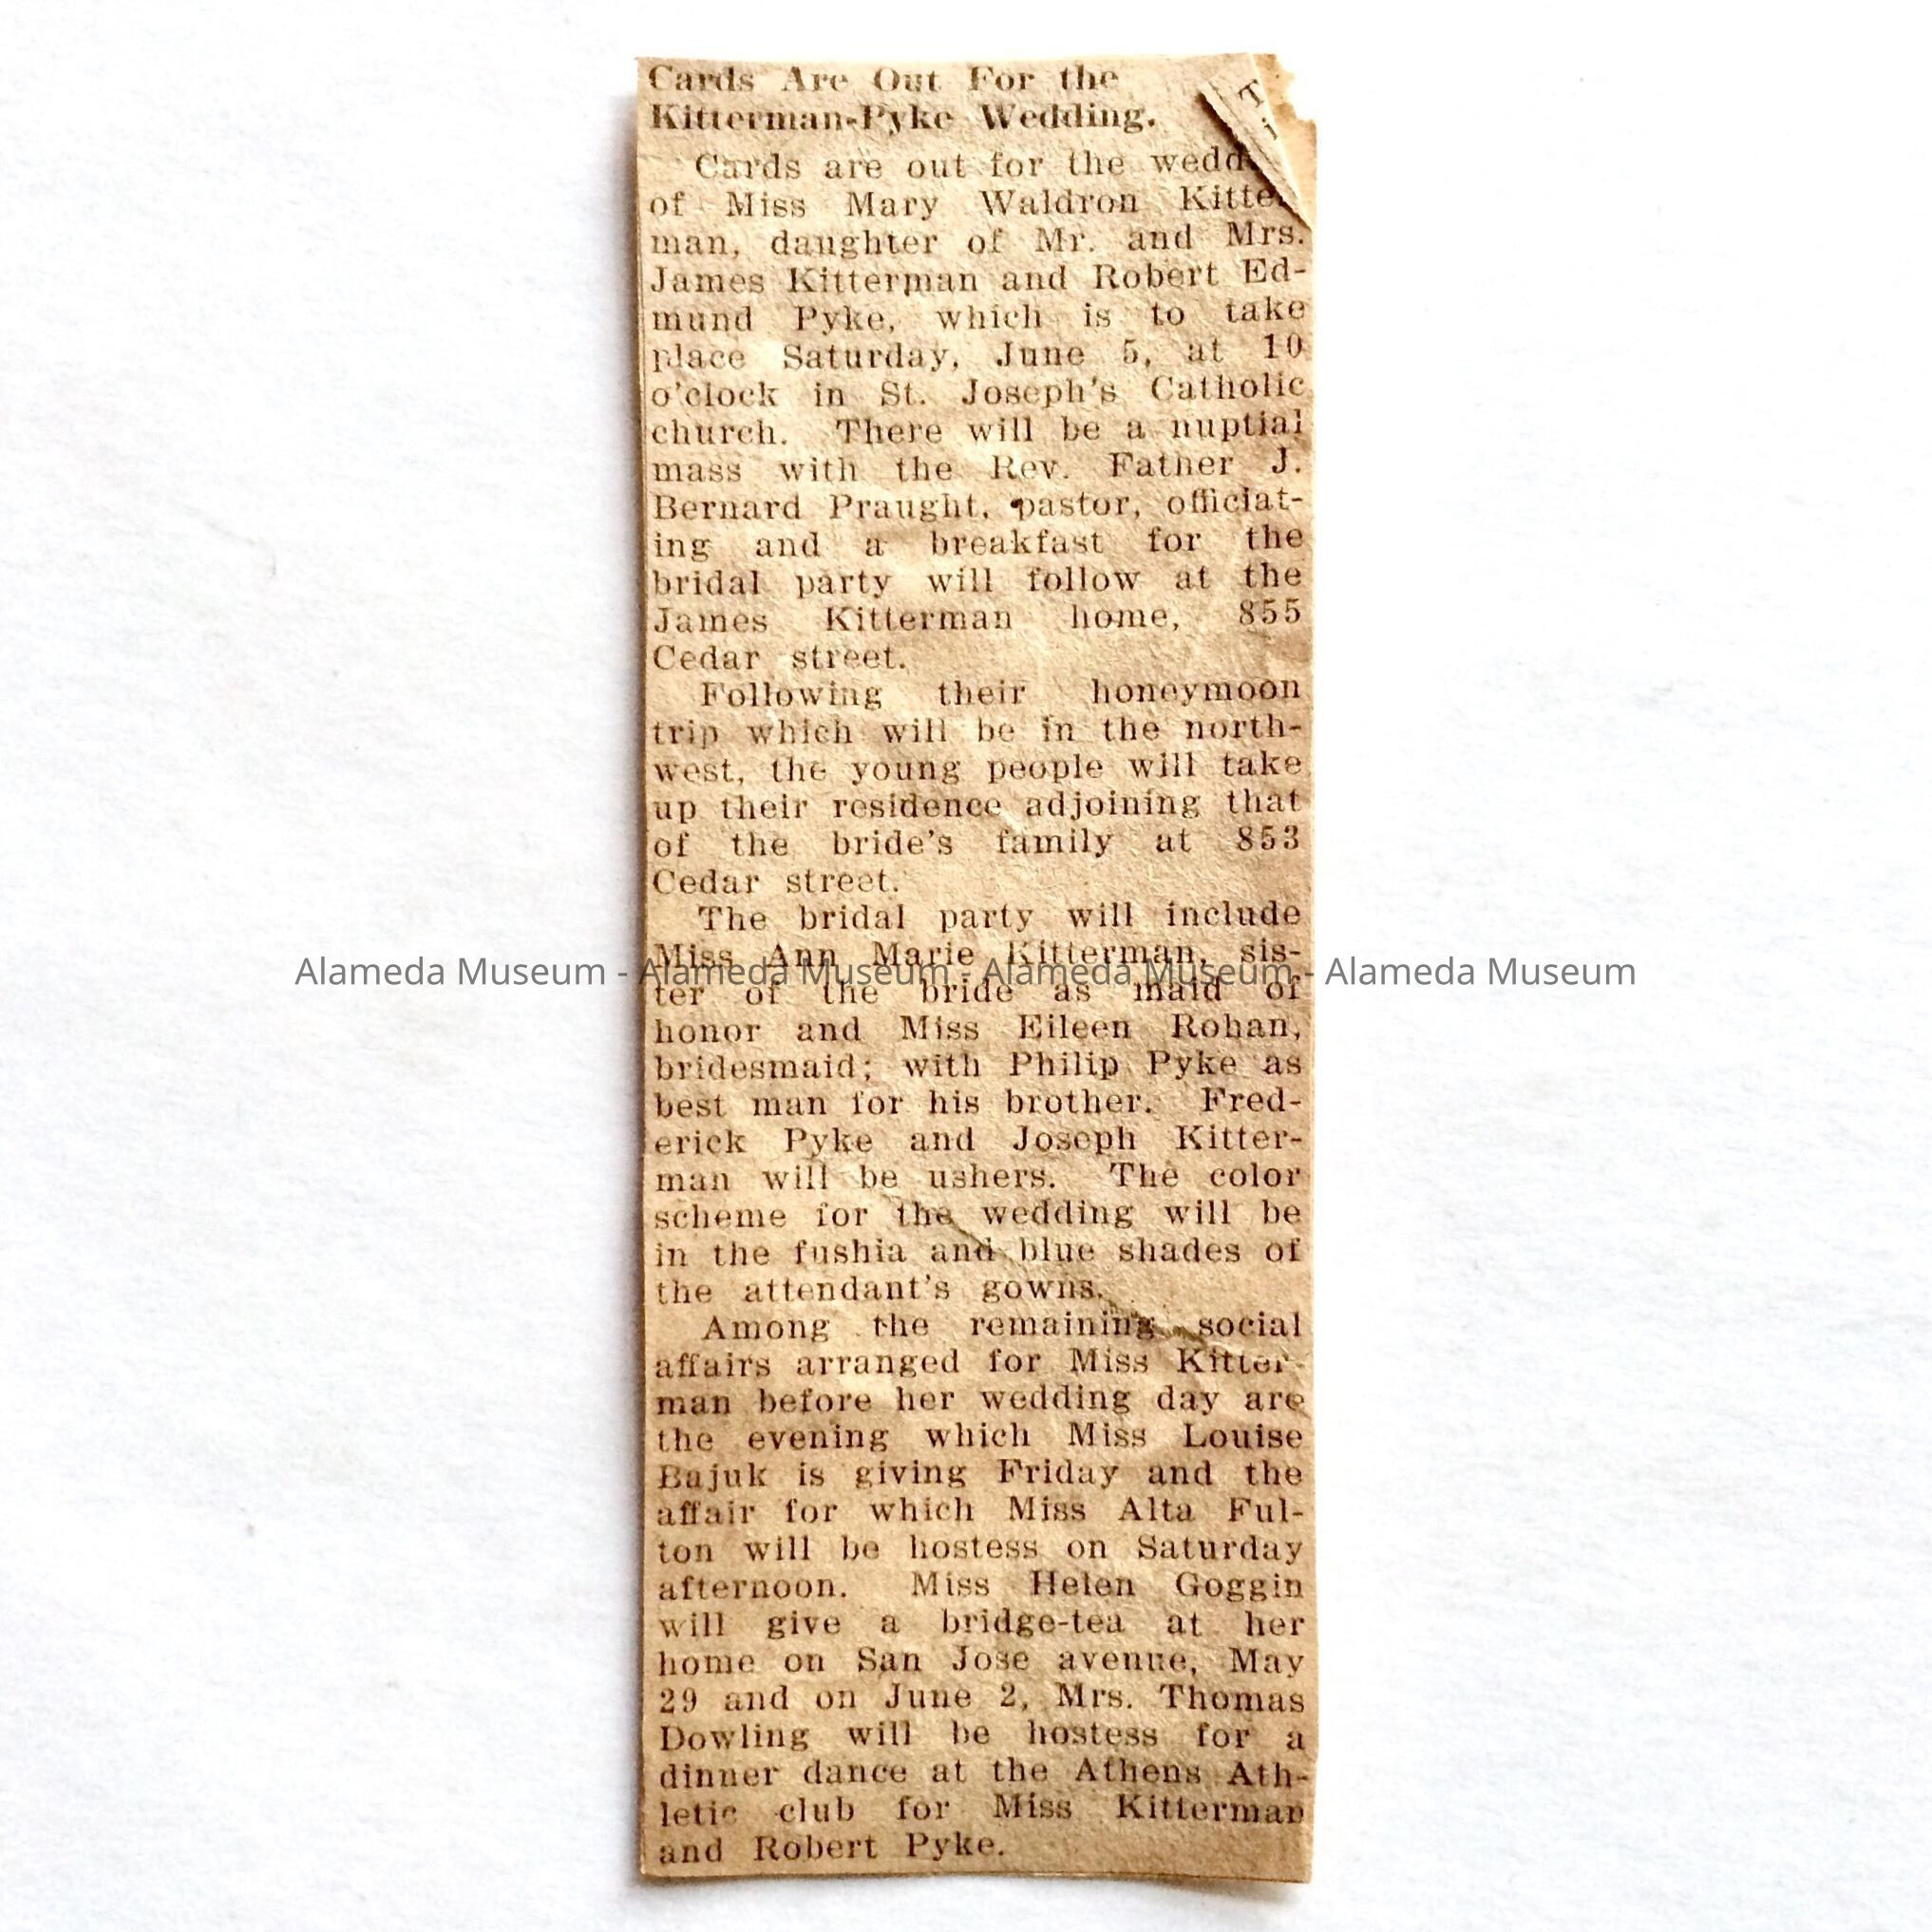 Cards Are Out For the
Kitterman-Pyke Wedding.
Cards are out for the
of Miss Mary Waldron Kitter-
man, daughter of Mr. and Mrs.
James Kitterman and Robert Ed-
mund Pyke, which is to take
place Saturday, June 5, at 10
o'clock in St. Joseph's Catholic
church. There will be a nuptial
mass with the Rev. Father J.
Bernard Praught, pastor, officiat-
ing and a breakfast for the
bridal party will follow at the
James Kitterman home, 855
Cedar street.
Following their honeymoon
trip which will be in the north-
west, the young people will take
up their residence adjoining that
of the bride's family at 853
Cedar street.
The bridal party will include
Miss Ann Marie Kitterman, sis-
Alameda Museum - Alameda Museum - Alameda Museum - Alameda Museum
ter of the bride as maid of
honor and Miss Eileen Rohan,
bridesmaid; with Philip Pyke as
best man for his brother. Fred-
erick Pyke and Joseph Kitter-
man will be ushers. The color
scheme for the wedding will be
in the fushia and blue shades of
the attendant's gowns.
Among the remaining social
affairs arranged for Miss Kitter-
man before her wedding day are
the evening which Miss Louise
Bajuk is giving Friday and the
affair for which Miss Alta Ful-
ton will be hostess on Saturday
afternoon. Miss Helen Goggin
will give a bridge-tea at her
home on San Jose avenue, May
29 and on June 2, Mrs. Thomas
Dowling will be hostess for a
dinner dance at the Athens Ath-
letic club for Miss Kitterman
and Robert Pyke.